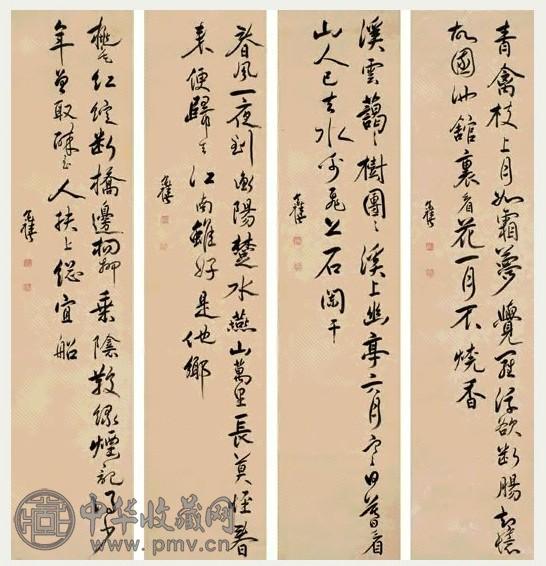 青禽枝上月如霜夢覺羅浮欲斷腸却憶
故園池館裏看花一月不燒香
溪雲藹〻樹團〻溪上幽亭六月寒日暮看
山人已去水禽飛上石闌干
春風一夜到衡陽楚水燕山萬里長莫怪春
來便歸去江南雖好是他鄉
桃花紅綻斷橋邊楊柳垂陰散綠煙記得少
年曾取醉玉人扶上總宜船
中华收藏网
www.pmv.cn